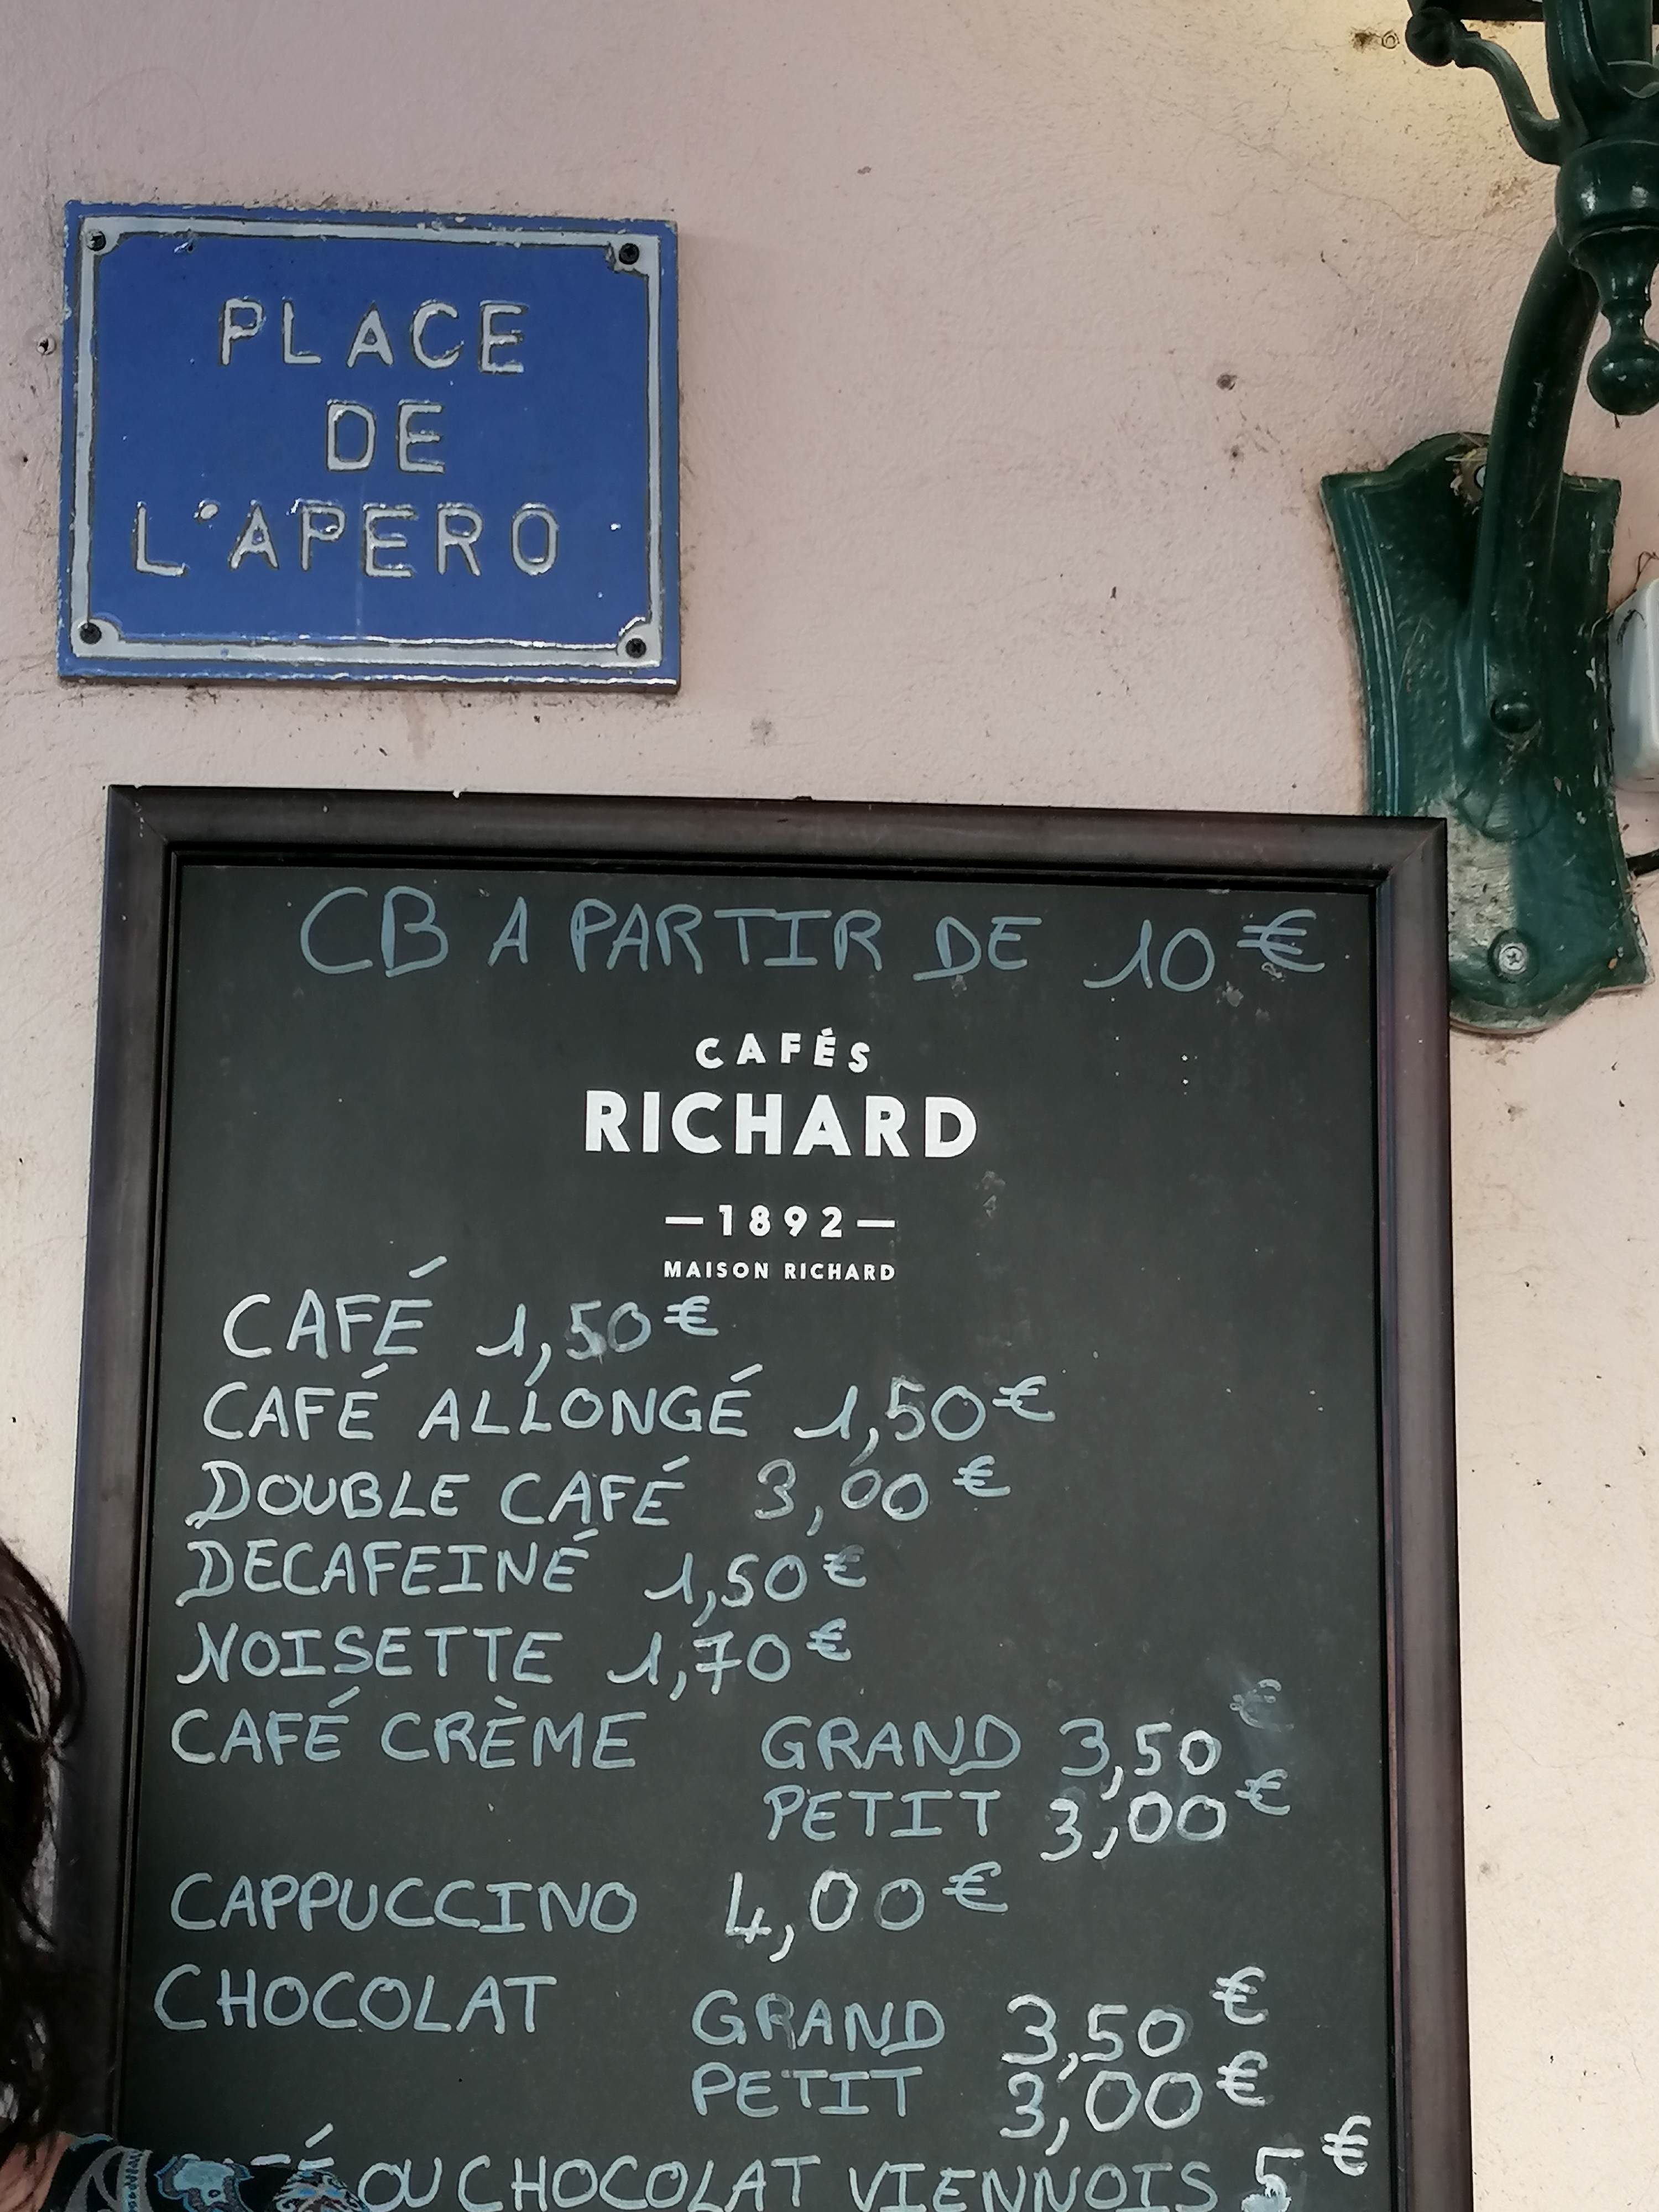 PLACE
DE
L'APERO
CB A PARTIR DE 10 €
CAFÉS
RICHARD
—1892—
MAISON RICHARD
CAFÉ 1,50€
CAFÉ ALLONGÉ 1,50€
DOUBLE CAFÉ 3,00€
DECAFEINÉ 1,50€
NOISETTE 1,70€
CAFÉ CRÈME GRAND 3,50€
PETIT 3,00€
CAPPUCCINO 4,00€
CHOCOLAT GRAND 3,50€
PETIT 3,00€
OU CHOCOLAT VIENNOIS 5€